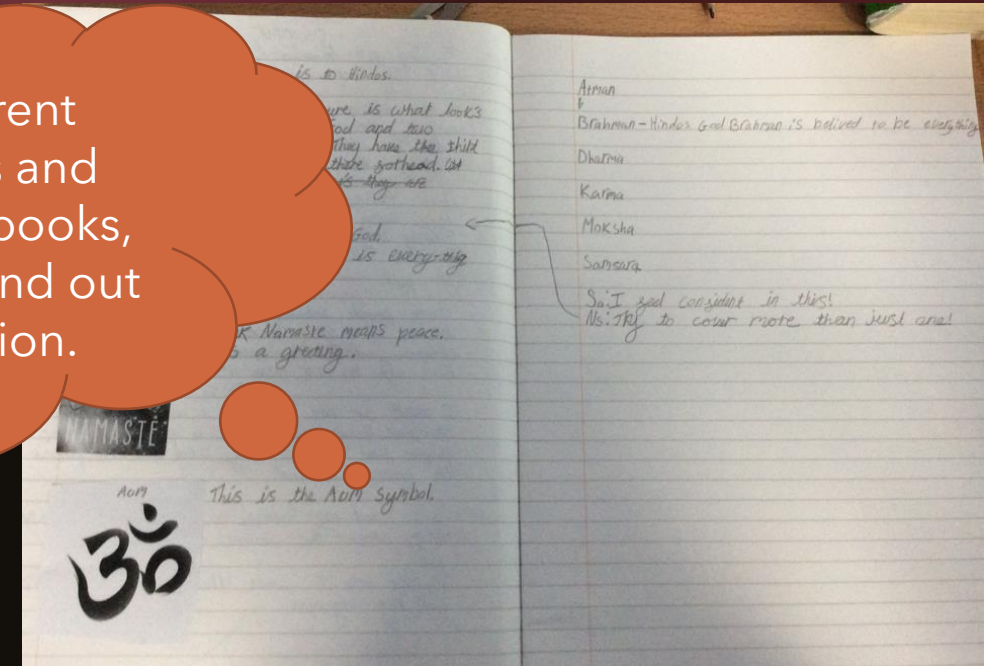 rent
s and
books,
nd out
ion.
is to Hindos.
ure is what look's
od and two
They have the third
there
is they are
God.
is every-thig
Namaste means peace.
a greeting.
NAMASTE
AUM
This is the AUM symbol.
Atman
Brahman-Hindos God Brahman is belived to be everything
Dharma
Karma
Moksha
Samsara
Sa: I feel confident in this!
Ns: Try to cover more than just one!